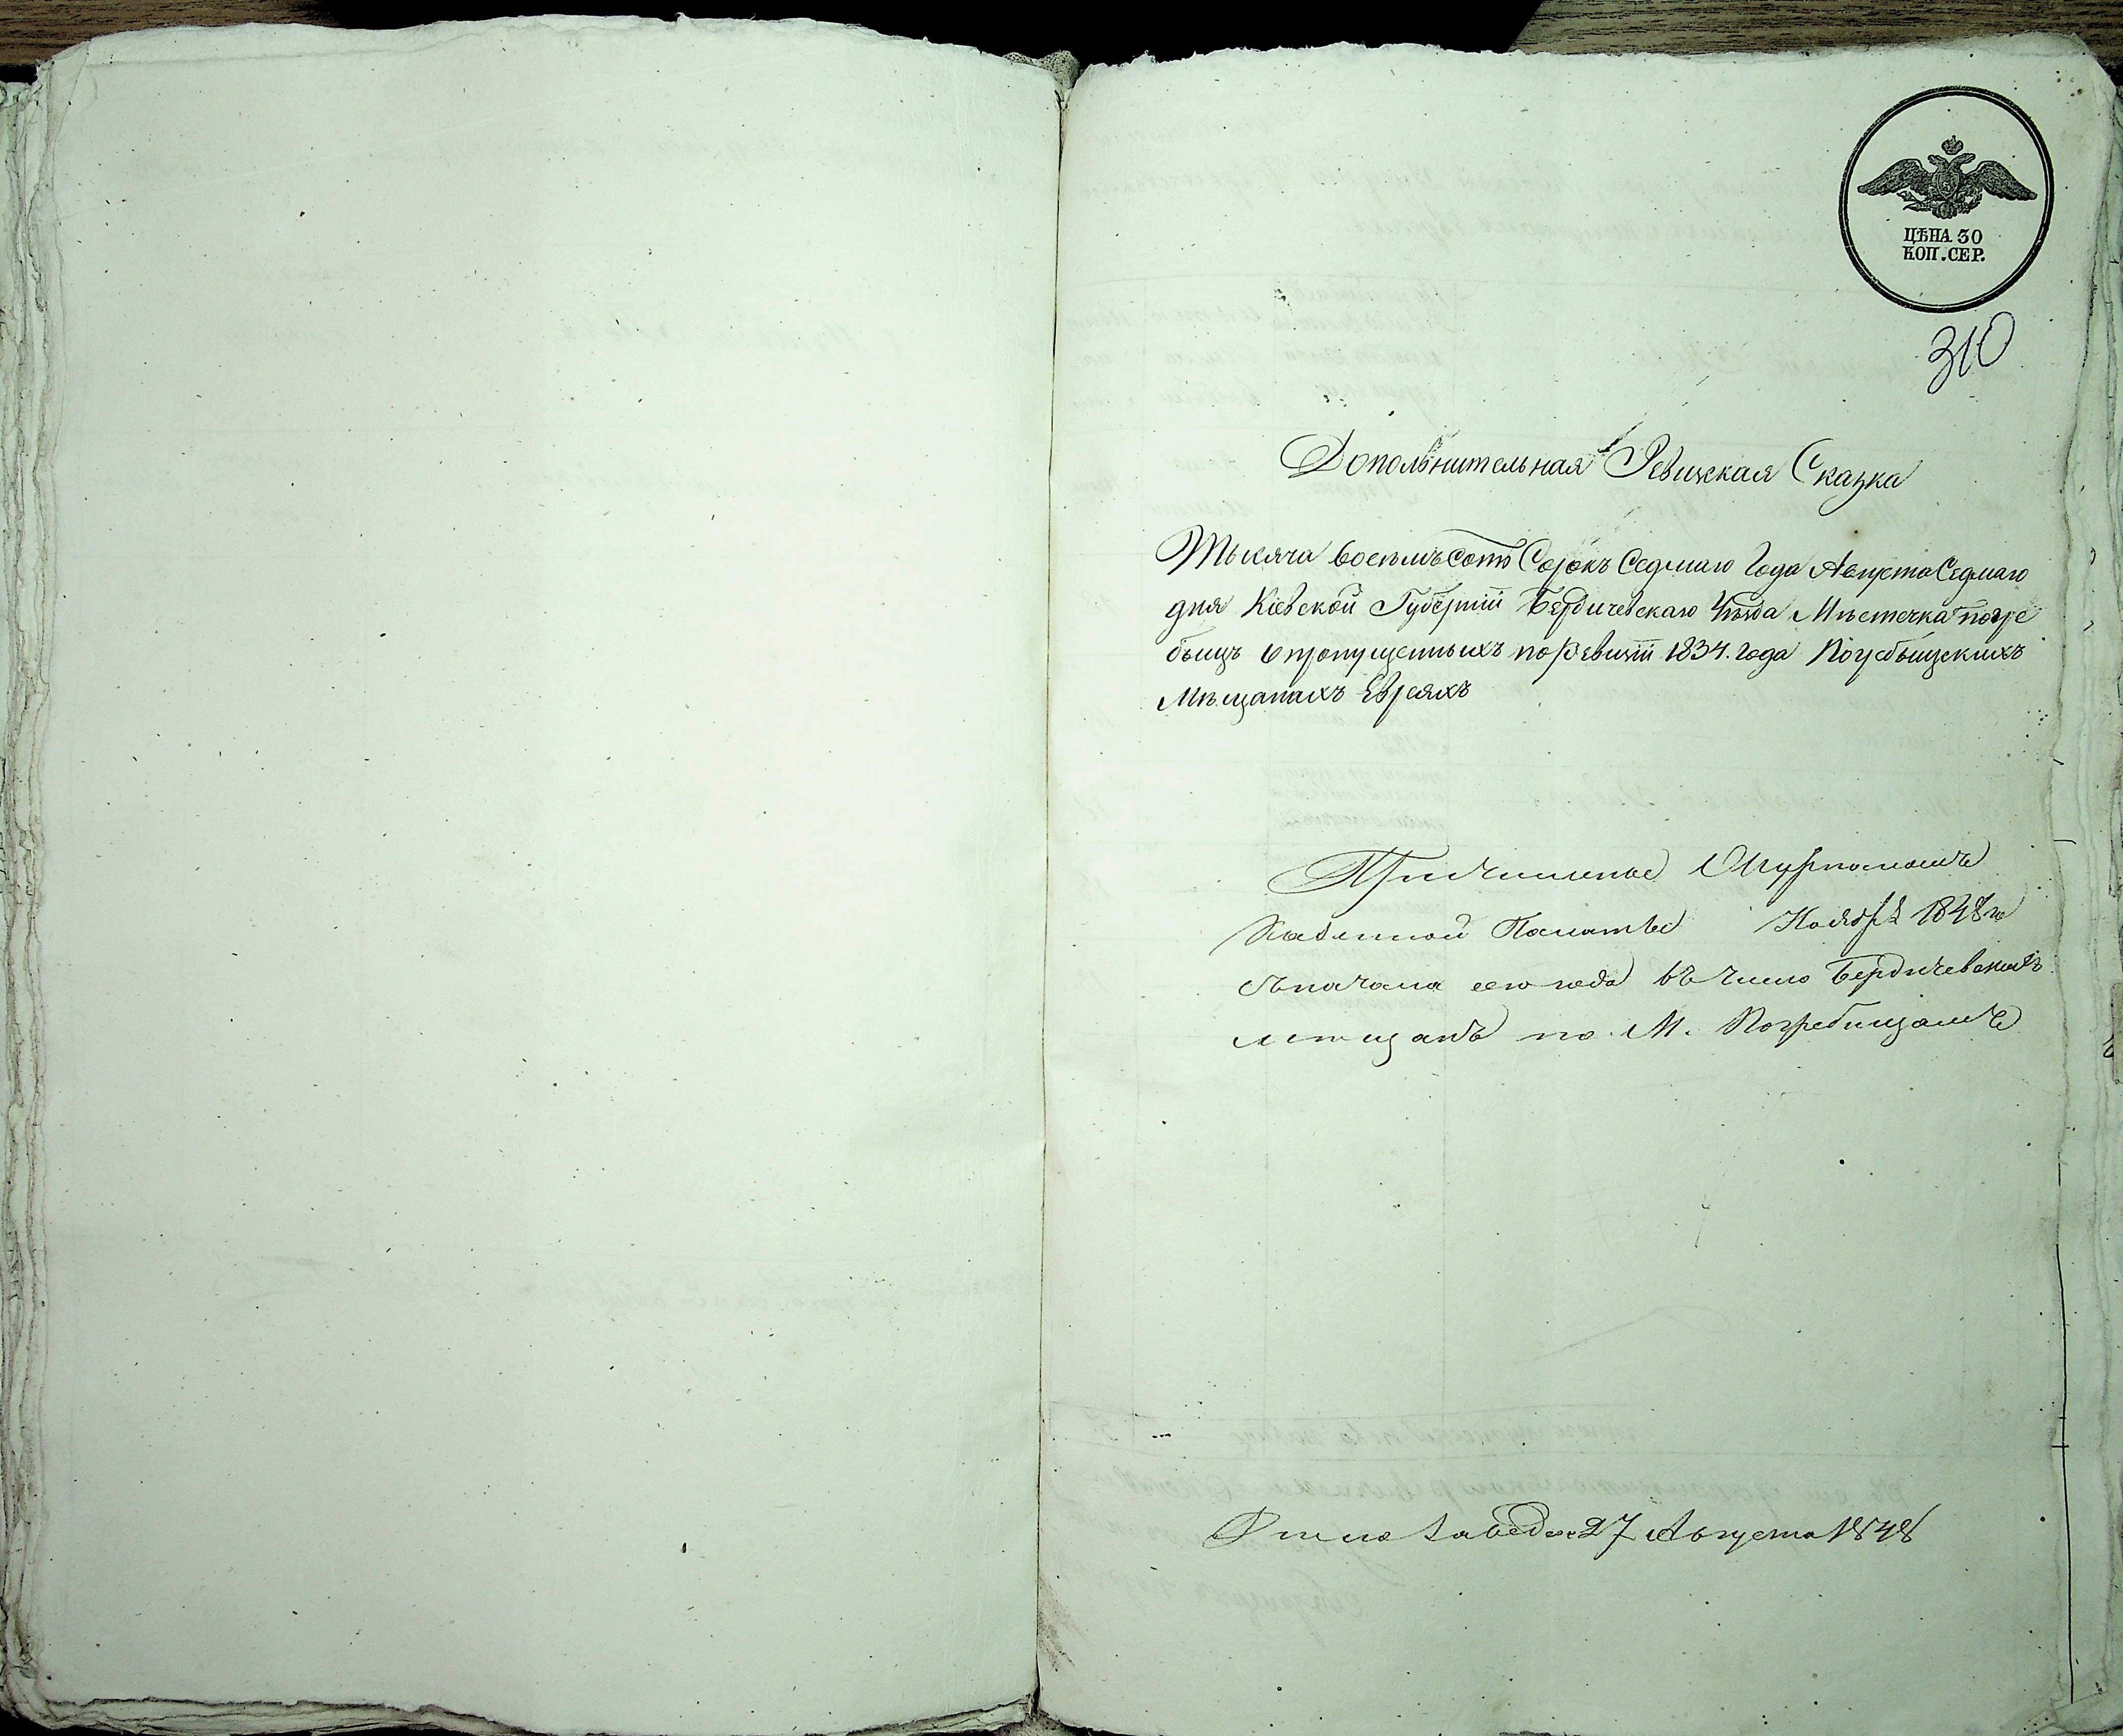 ЦѢНА 30
КОП. СЕР.
310
Дополнительная Ревизская Сказка
Тысяча восемьсотъ Сорокъ Седмаго Года Августа Седмаго
дня Кіевской Губерніи Бердичевскаго Уѣзда Мѣстечка погре
бищъ о пропущенныхъ по Ревизіи 1834. года Погребыщскихъ
Мѣщанахъ Евреяхъ
Причисленые
Казенной Палаты Ноября 1848 го
сначала сего года въ число Бердичевскихъ
мѣщанъ по М. Погребищамъ
27 Августа 1848